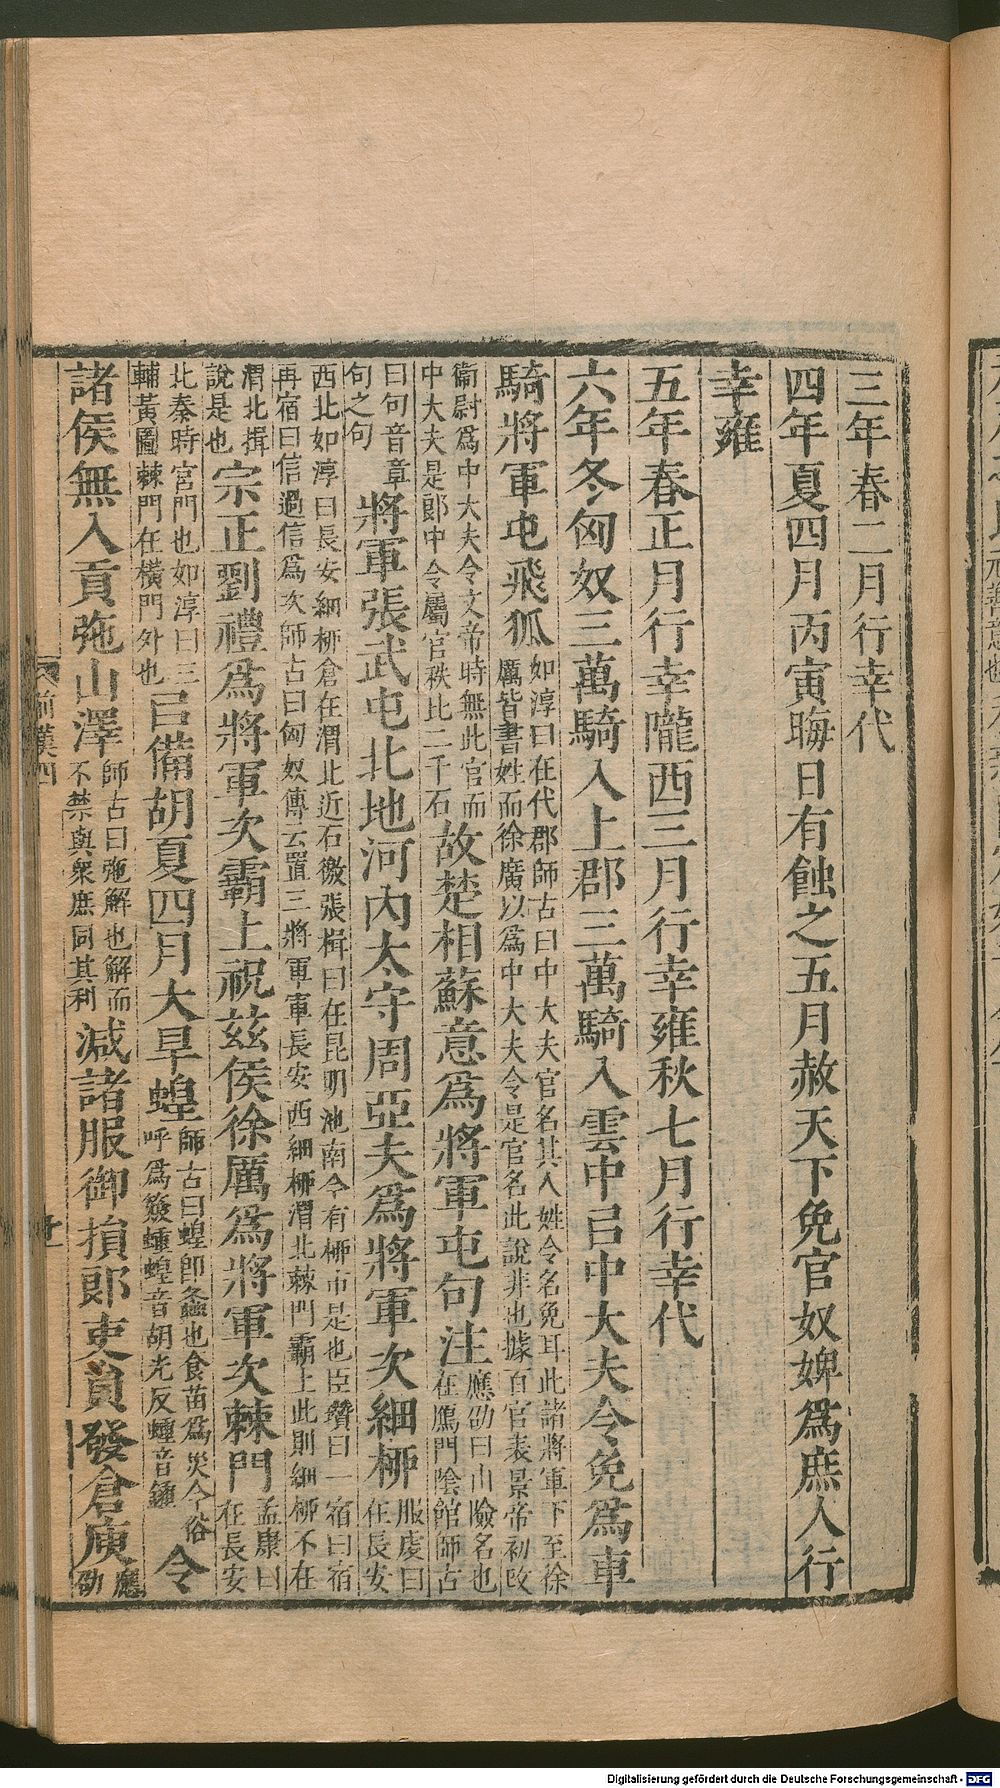 三年春二月行幸代
四年夏四月丙寅晦日有蝕之五月赦天下免官奴婢爲庶人行
幸雍
五年春正月行幸隴西三月行幸雍秋七月行幸代
六年冬匈奴三萬騎入上郡三萬騎入雲中㠯中大夫令免爲車
騎將軍屯飛狐如淳曰在代郡師古曰中大夫官名其人姓令名免耳此諸將軍下至徐
厲皆書姓而徐廣以爲中大夫令是官名此說非也據百官表景帝初改
衞尉爲中大夫令文帝時無此官而
中大夫是郎中令屬官秩比二千石故楚相蘇意爲將軍屯句注應劭曰山險名也
在鴈門陰館師古
曰句音章
句之句將軍張武屯北地河内太守周亞夫爲將軍次細柳服虔曰
在長安
西北如淳曰長安細柳倉在渭北近石徼張楫曰在昆明池南今有柳巿是也臣瓚曰一宿曰宿
再宿曰信過信爲次師古曰匈奴傳云置三將軍軍長安西細柳渭北棘門霸上此則細柳不在
渭北揖
說是也宗正劉禮爲將軍次霸上祝茲侯徐厲爲將軍次棘門孟康曰
在長安
北秦時宮門也如淳曰三
輔黃圖棘門在橫門外也㠯備胡夏四月大旱蝗師古曰蝗卽螽也食苗爲災今俗
呼爲簸蝩蝗音胡光反蝩音鍾令
諸侯無入貢弛山澤師古曰弛解也解而
不禁與衆庶同其利減諸服御損郎吏員發倉庾應
劭
前漢四
廿一
Digitalisierung gefördert durch die Deutsche Forschungsgemeinschaft - DFG